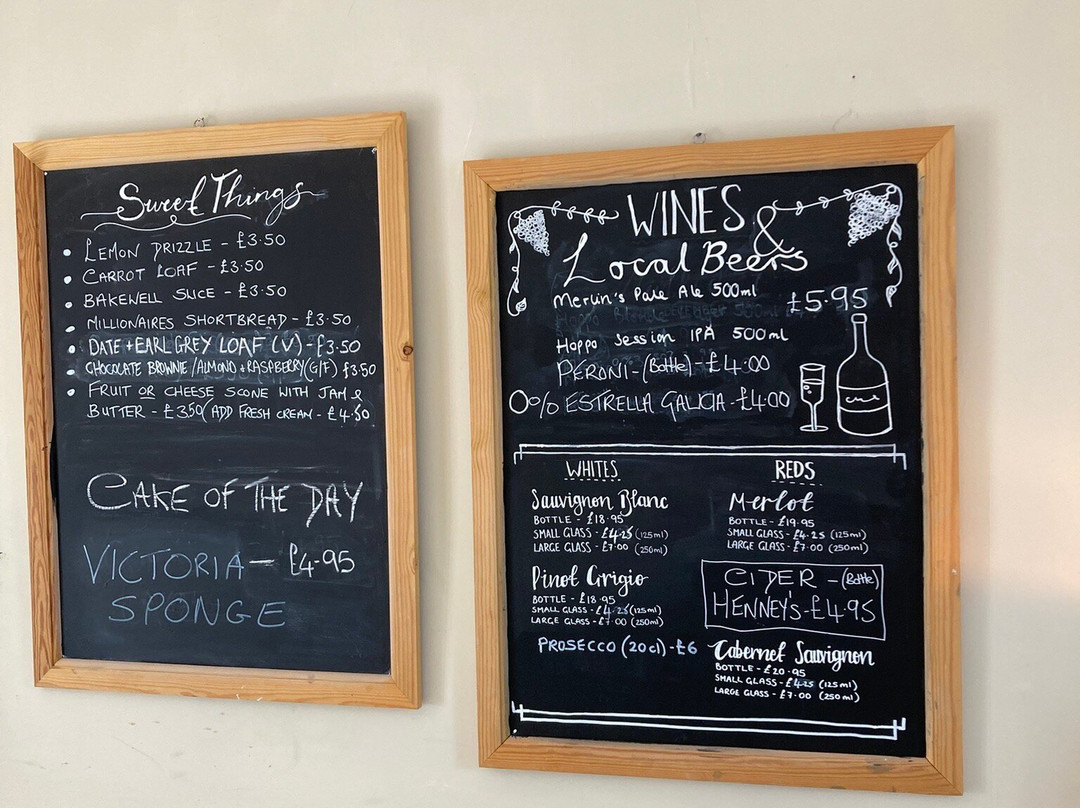 Sweet Things
• LEMON DRIZZLE - £3.50
• CARROT LOAF - £3.50
• BAKEWELL SLICE - £3.50
• MILLIONAIRES SHORTBREAD - £3.50
• DATE + EARL GREY LOAF (V) - £3.50
• CHOCOLATE BROWNIE / ALMOND + RASPBERRY (G/F) £3.50
• FRUIT OR CHEESE SCONE WITH JAM &
BUTTER - £3.50 (ADD FRESH CREAM - £4.50
CAKE OF THE DAY
VICTORIA - £4.95
SPONGE
WINES &
Local Beers
Merlin's Pale Ale 500ml
£5.95
Hoppo Session IPA 500ml
PERONI - (Bottle) - £4.00
0% ESTRELLA GALICIA - £4.00
WHITES
Sauvignon Blanc
BOTTLE - £18.95
SMALL GLASS - £4.25 (125ml)
LARGE GLASS - £7.00 (250ml)
Pinot Grigio
BOTTLE - £18.95
SMALL GLASS - £4.25 (125ml)
LARGE GLASS - £7.00 (250ml)
PROSECCO (20cl) - £6
REDS
Merlot
BOTTLE - £19.95
SMALL GLASS - £4.25 (125ml)
LARGE GLASS - £7.00 (250ml)
CIDER - (Bottle)
HENNEY'S - £4.95
Cabernet Sauvignon
BOTTLE - £20.95
SMALL GLASS - £4.25 (125ml)
LARGE GLASS - £7.00 (250ml)